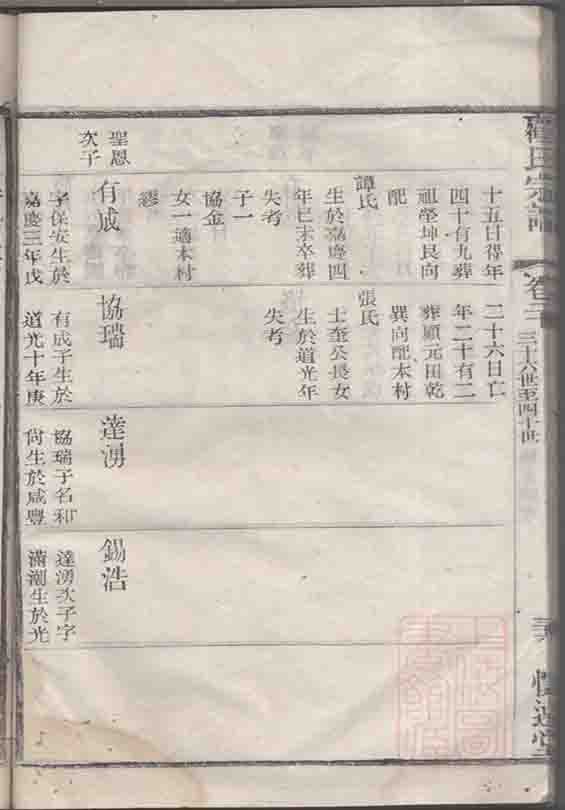 氏宗譜
卷二
三十六世至四十世
十五日得年
四十有九葬
祖塋坤艮向
配
譚氏
生於嘉慶四
年己未卒葬
失考
子一
協金
女一適本村
繆
二十六日亡
年二十有二
葬顧元田乾
巽向配本村
張氏
士奎公長女
生於道光年
失考
聖恩
次子
有成
字保安生於
嘉慶三年戊
協瑞
有成子生於
道光十年庚
達湧
協瑞子名和
尚生於咸豐
錫浩
達湧次子字
滿潮生於光